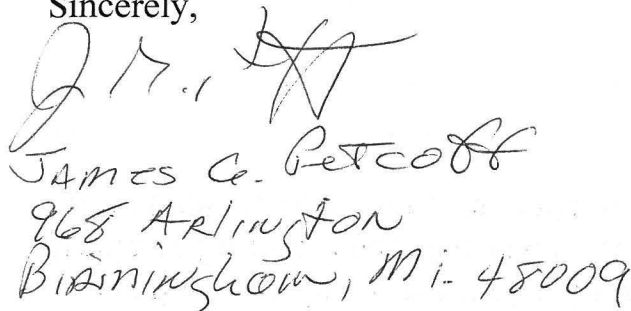 Sincerely,
JAMES G. PETCOFF
968 ARLINGTON
BIRMINGHAM, Mi. 48009